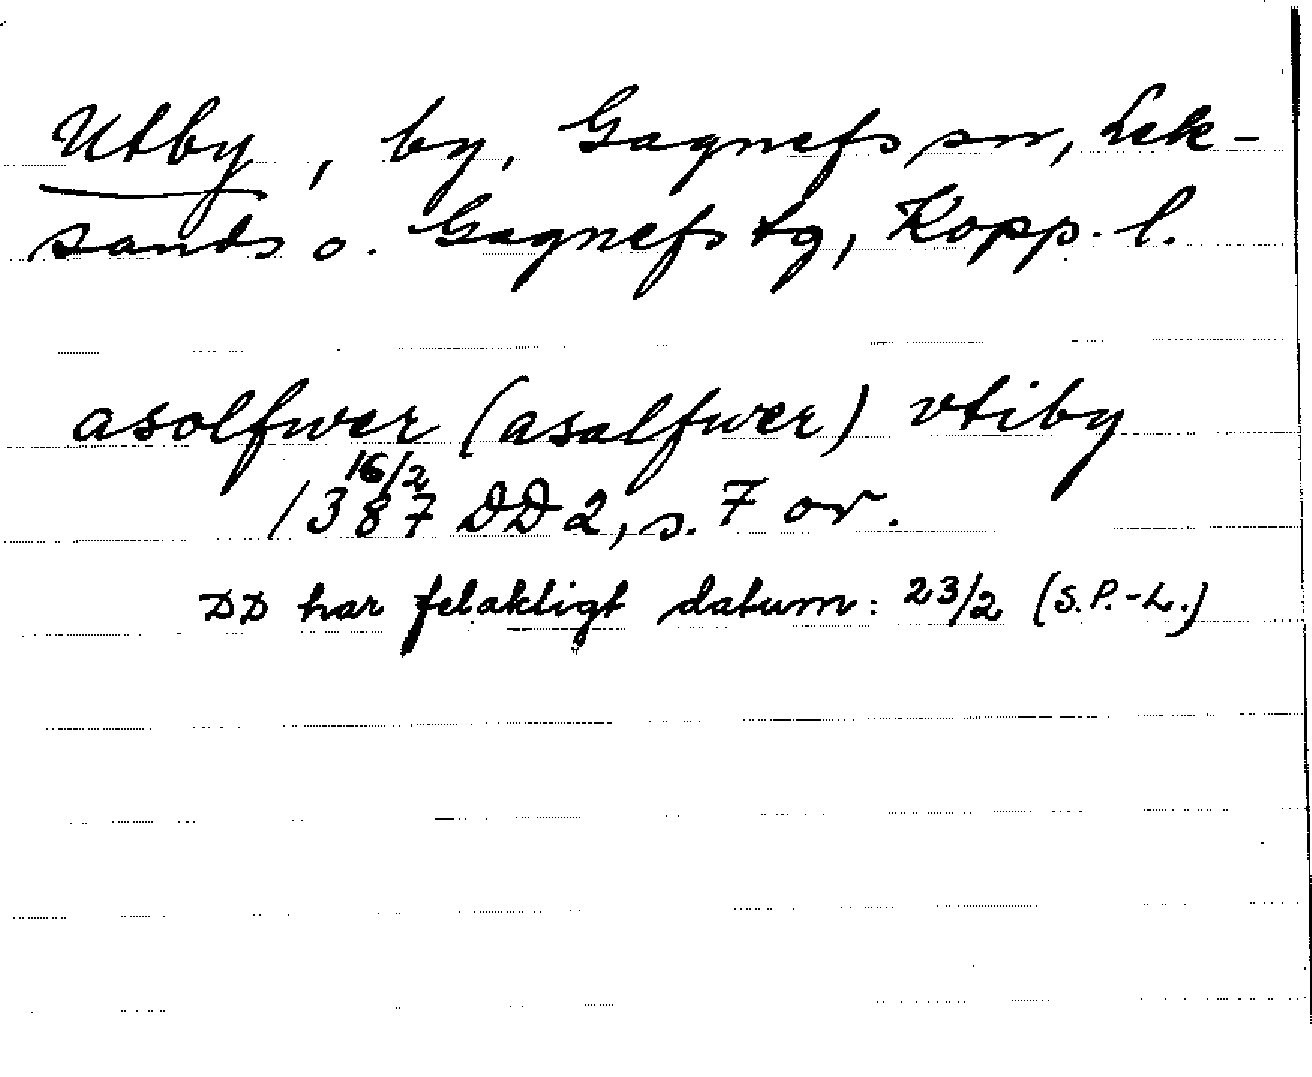 Utby, by, Gagnefs sn, Lek-
sands o. Gagnefs tg, Kopp. l.
asolfwer (asalfwer) vtiby
16/2
1387 DD 2, s. 7 or.
DD har felaktigt datum: 23/2 (S.P.-L.)